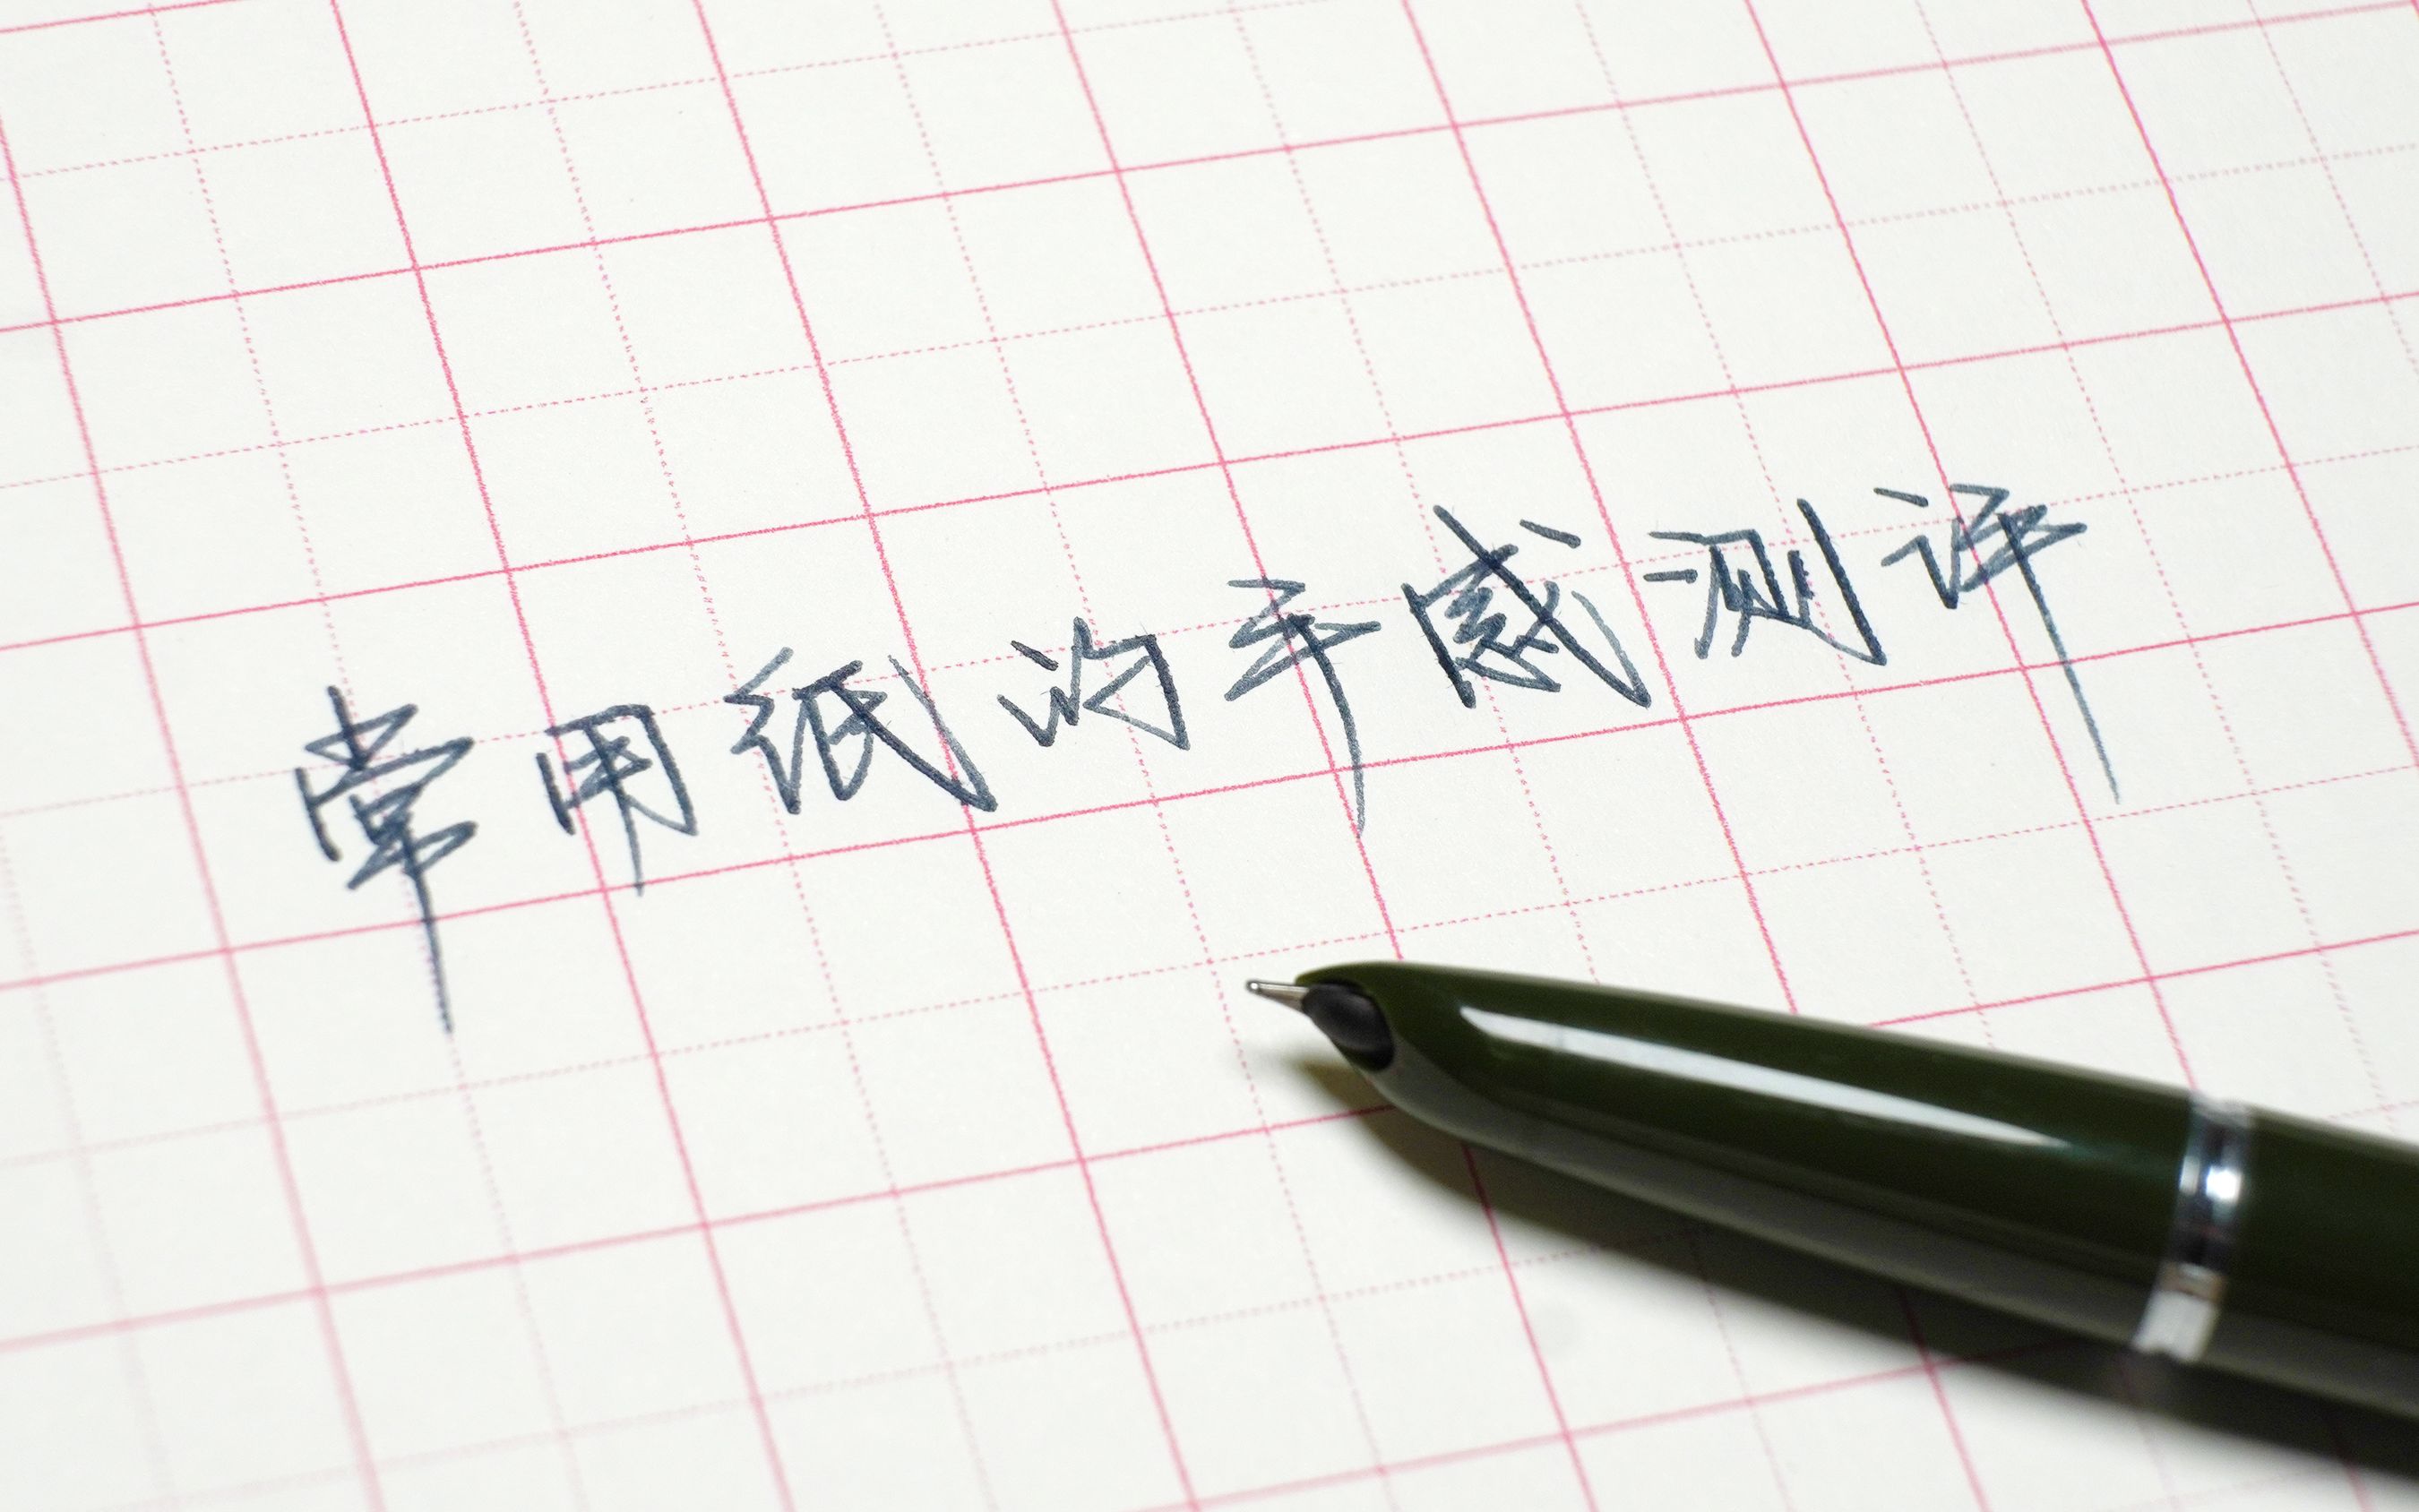 常用纸的手感测评